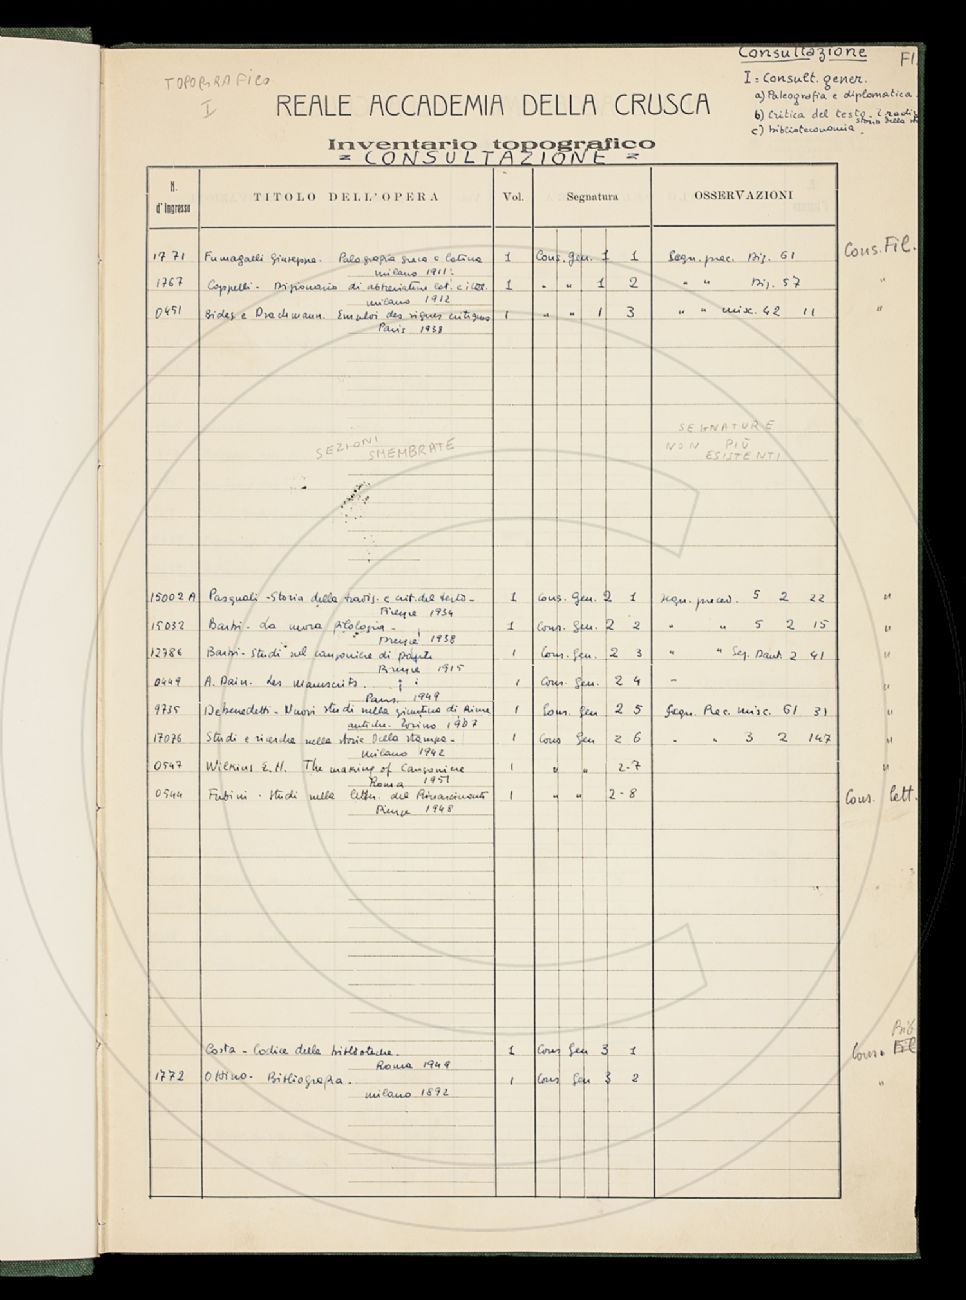 Consultazione
TOPOGRAFICO
I
I = Consult. gener.
a) Paleografia e diplomatica.
b) Critica del testo.
c) biblioteconomia.
REALE ACCADEMIA DELLA CRUSCA
Inventario topografico
= CONSULTAZIONE =
N. d'Ingresso TITOLO DELL'OPERA Vol. Segnatura OSSERVAZIONI
Cons. Fil.
1771 Fumagalli Giuseppe. Paleografia greca e latina 1 Cons. gen. 1 1 Segn. prec. Diz. 61
Milano 1911.
1767 Cappelli - Dizionario di abbreviature lat. e ital. 1 " " 1 2 " " Diz. 57 "
Milano 1912
0451 Bidez e Drachmann. Emploi des signes critiques 1 " " 1 3 " " misc. 42 11 "
Paris 1938
SEZIONI
SMEMBRATE
SEGNATURE
NON PIÙ
ESISTENTI
15002 A Pasquali - Storia della tradiz. e crit. del testo - 1 Cons. Gen. 2 1 segn. preced. 5 2 22 "
Firenze 1934
15032 Barbi - La nuova filologia - 1 Cons. Gen. 2 2 " " 5 2 15 "
Firenze 1938
12786 Barbi - Studi sul canzoniere di Dante 1 Cons. Gen. 2 3 " " Sez. Dant. 2 41 "
Firenze 1915
0449 A. Dain - Les manuscrits. 1 Cons. Gen. 2 4 - "
Paris. 1949
9735 Debenedetti - Nuovi studi sulla giuntina di Rime 1 Cons. Gen 2 5 Segn. Prec. Misc. 61 31 "
antiche. Torino 1907
17076 Studi e ricerche nella storia della stampa - 1 Cons Gen 2 6 " " 3 2 147 "
Milano 1942
0547 Wilkins E. H. The making of Canzoniere 1 " " 2-7 "
Roma 1951
0544 Fubini - Studi sulla letter. del Rinascimento 1 " " 2-8 Cons. Lett.
Firenze 1948
Bib
Costa - Codice delle biblioteche. 1 Cons Gen 3 1 Cons.
Roma 1949
1772 Ottino - Bibliografia. 1 Cons Gen 3 2 "
Milano 1892